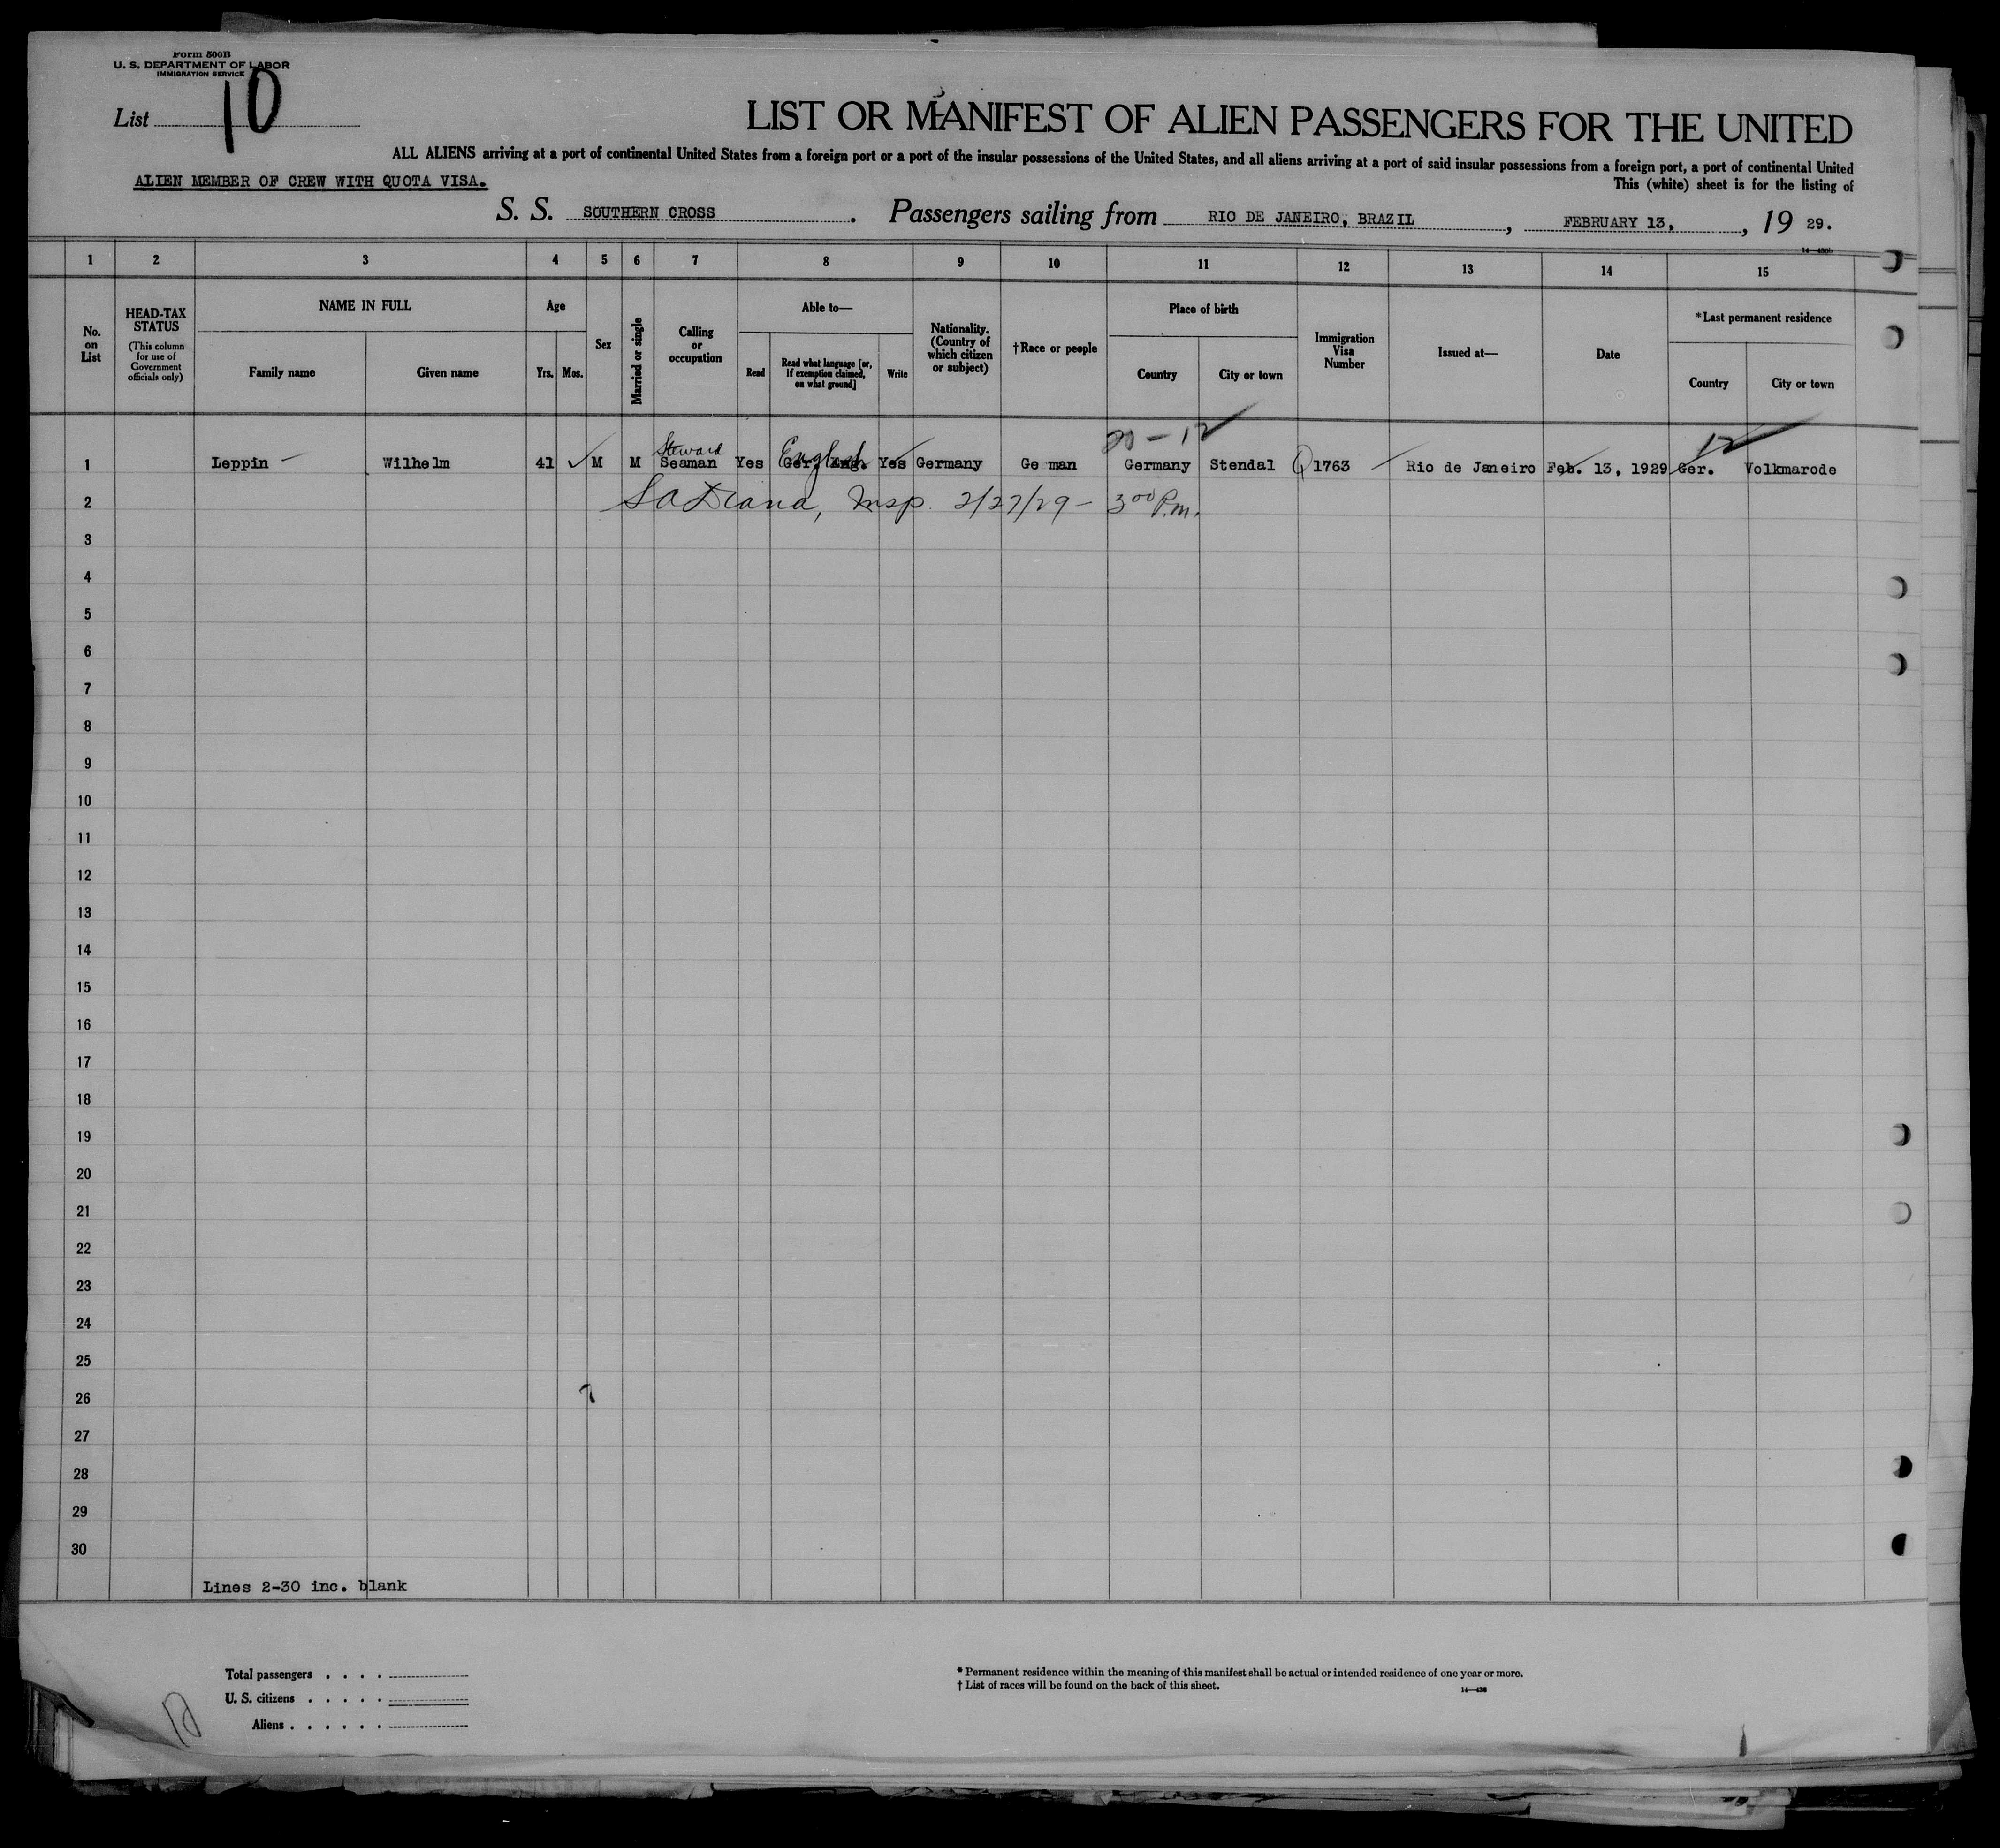 Form 500B
U. S. DEPARTMENT OF LABOR
IMMIGRATION SERVICE
List 10
LIST OR MANIFEST OF ALIEN PASSENGERS FOR THE UNITED
ALL ALIENS arriving at a port of continental United States from a foreign port or a port of the insular possessions of the United States, and all aliens arriving at a port of said insular possessions from a foreign port, a port of continental United
ALIEN MEMBER OF CREW WITH QUOTA VISA.
This (white) sheet is for the listing of
S. S. SOUTHERN CROSS. Passengers sailing from RIO DE JANEIRO, BRAZIL, FEBRUARY 13, , 19 29.
1 2 3 4 5 6 7 8 9 10 11 12 13 14 15
No. on List
HEAD-TAX STATUS
(This column for use of Government officials only)
NAME IN FULL
Family name
Given name
Age
Yrs. Mos.
Sex
Married or single
Calling or occupation
Able to—
Read
Read what language [or, if exemption claimed, on what ground]
Write
Nationality. (Country of which citizen or subject)
†Race or people
Place of birth
Country
City or town
Immigration Visa Number
Issued at—
Date
*Last permanent residence
Country
City or town
20-12 12
Steward English
1 Leppin Wilhelm 41 M M Seaman Yes Ger. Eng. Yes Germany Ge man Germany Stendal Q 1763 Rio de Janeiro Feb. 13, 1929 Ger. Volkmarode
2 Insp. 2/27/29 - 3 00 P.m.
3
4
5
6
7
8
9
10
11
12
13
14
15
16
17
18
19
20
21
22
23
24
25
26
27
28
29
30
Lines 2-30 inc. blank
Total passengers . . . .
U. S. citizens . . . . .
Aliens . . . . . .
* Permanent residence within the meaning of this manifest shall be actual or intended residence of one year or more.
† List of races will be found on the back of this sheet.